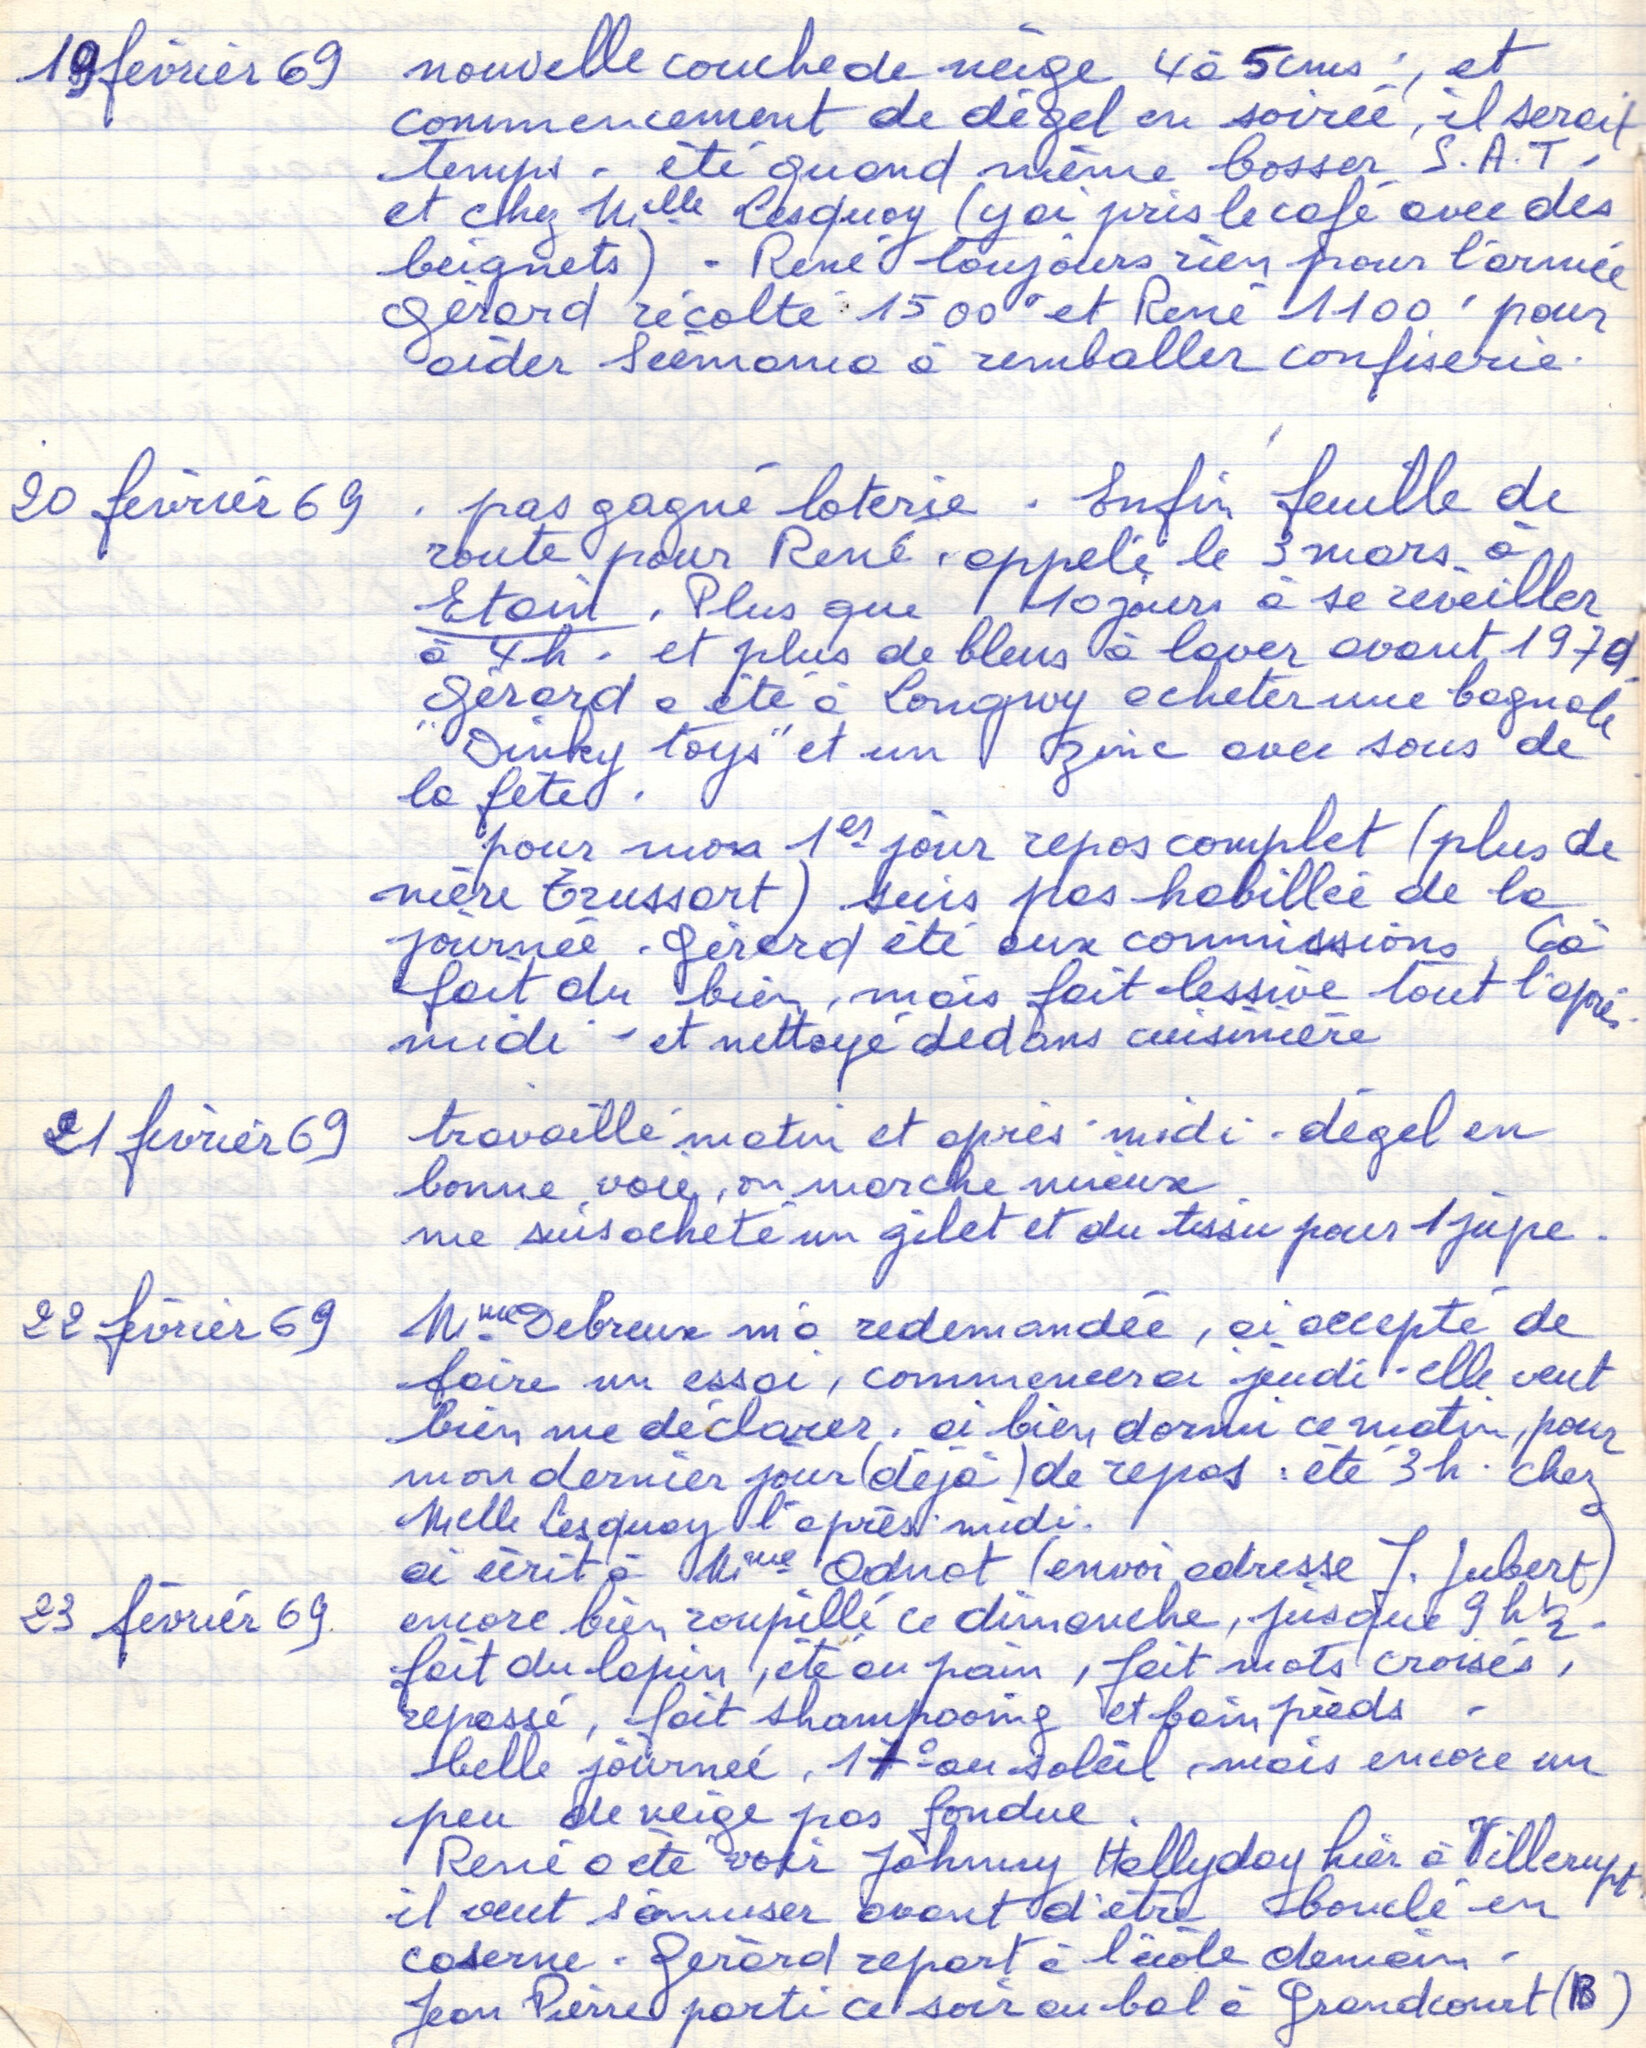 19 février 69 nouvelle couche de neige 4 à 5 cms, et
commencement de dégel en soirée, il serait
temps. été quand même bosser S.A.T.
et chez Melle Lesquoy (y ai pris le café avec des
beignets) - René toujours rien pour l'armée
Gérard récolté 1500 et René 1100 pour
aider à remballer confiserie.
20 février 69 . pas gagné loterie. Enfin feuille de
route pour René, appelé le 3 mars à
Etain. Plus que 10 jours à se réveiller
à 4h. et plus de bleus à laver avant 1970
Gérard a été à Longwy acheter une bagnole
"Dinky toys" et un zinc avec sous de
la fête.
pour moi 1er jour repos complet (plus de
mère Trussart) suis pas habillée de la
journée. Gérard été aux commissions. Cà
fait du bien, mais fait lessive tout l'après-
midi - et nettoyé dedans cuisinière
21 février 69 travaillé matin et après-midi. dégel en
bonne voie, on marche mieux
me suis acheté un gilet et du tissu pour 1 jupe.
22 février 69 Mme Debreux m'a redemandée, ai accepté de
faire un essai, commencerai jeudi - elle veut
bien me déclarer. ai bien dormi ce matin, pour
mon dernier jour (déjà) de repos : été 3h. chez
Melle Lesquoy l'après-midi.
ai écrit à Mme Odnot (envoi adresse J. Jubert)
23 février 69. encore bien roupillé ce dimanche, jusque 9 h ½.
fait du lapin, été au pain, fait mots croisés,
repassé, fait shampooing et bain pieds -
belle journée, 17° au soleil, mais encore un
peu de neige pas fondue.
René a été voir Johnny Hallyday hier à Villerupt,
il veut s'amuser avant d'être bouclé en
caserne. Gérard repart à l'école demain.
Jean Pierre parti ce soir au bal à Grandcourt (B)